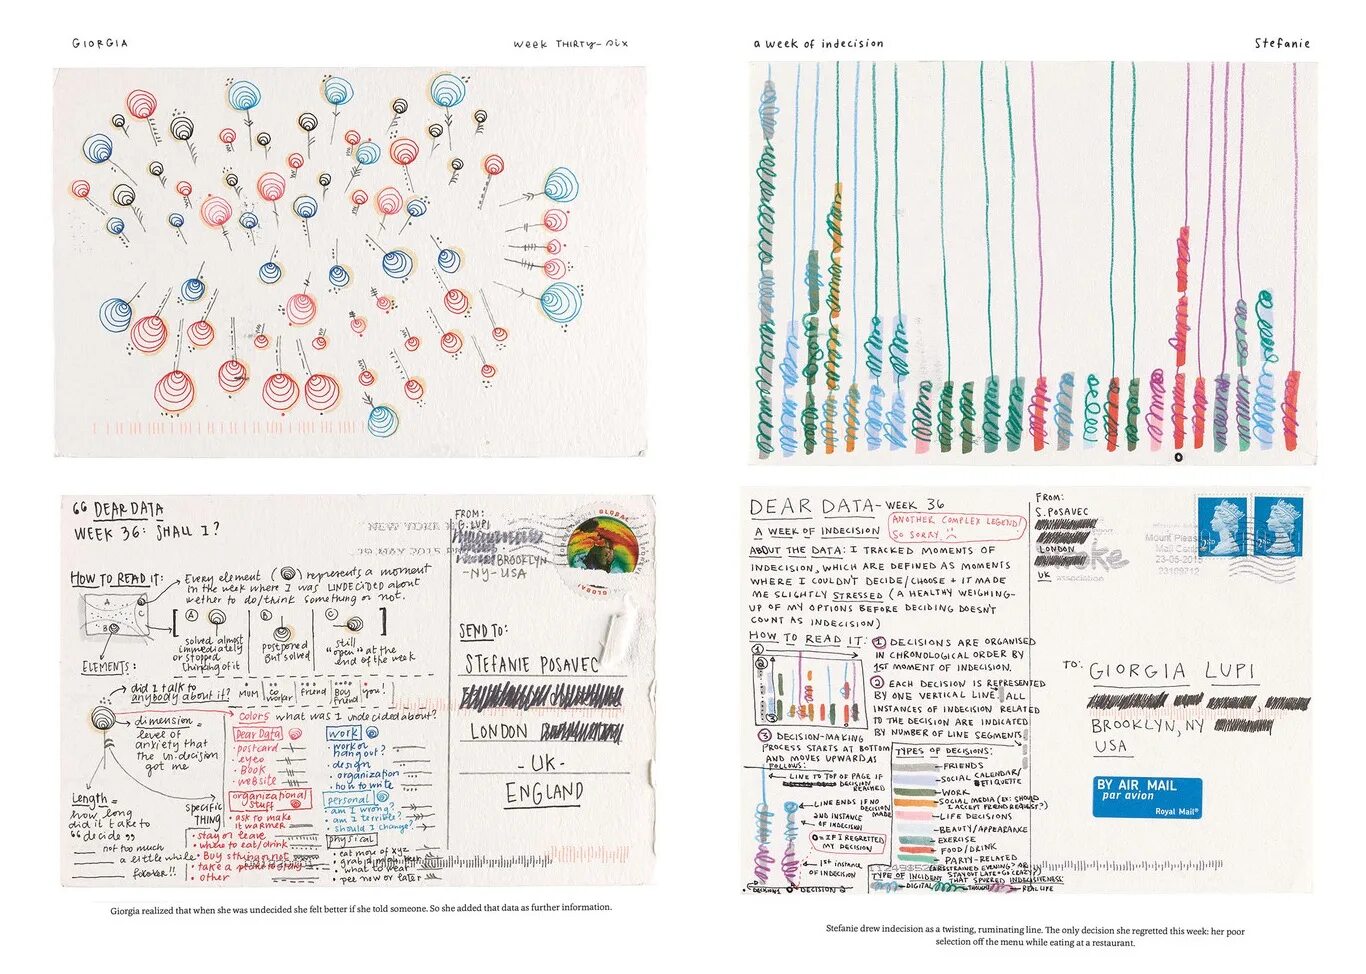 GIORGIA
WEEK THIRTY-SIX
a week of indecision
Stefanie
DEAR DATA
WEEK 36: SHALL I?
HOW TO READ IT:
Every element ( ) represents a moment
in the week where I was UNDECIDED about
wether to do/think something or not.
A
B
C
A
B
C
solved almost
immediately
or stopped
thinking of it
postponed
BUT solved
still
"open" at the
end of the week
ELEMENTS:
did I talk to
anybody about it?
MUM
CO
worker
friend
Boy
friend
you!
dimension =
level of
anxiety that
the un-decision
got me
Length =
how long
did it take to
"decide"
not too much
a little while
forever!!
specific
THING
colors what was I undecided about?
Dear Data
• postcard
• BOOK
• website
organizational
stuff
• ask to make
it warmer
• stay or leave
• where to eat/drink
• Buy string or not
• other
work
• work or
hang out?
• design
• organization
• how to write
personal
• am I wrong?
• am I terrible?
• should I change?
physical
• eat more of xyz
• what to wear
• pee now or later
NEW YORK
19 MAY 2015
FROM:
G. LUPI
BROOKLYN
-NY-USA
GLOBAL
SEND TO:
STEFANIE POSAVEC
LONDON
-UK-
ENGLAND
Giorgia realized that when she was undecided she felt better if she told someone. So she added that data as further information.
DEAR DATA-WEEK 36
A WEEK OF INDECISION
ANOTHER COMPLEX LEGEND/
SO SORRY.
ABOUT THE DATA: I TRACKED MOMENTS OF
INDECISION, WHICH ARE DEFINED AS MOMENTS
WHERE I COULDN'T DECIDE/CHOOSE + IT MADE
ME SLIGHTLY STRESSED (A HEALTHY WEIGHING-
UP OF MY OPTIONS BEFORE DECIDING DOESN'T
COUNT AS INDECISION)
HOW TO READ IT:
1 DECISIONS ARE ORGANISED
IN CHRONOLOGICAL ORDER BY
1ST MOMENT OF INDECISION.
2 EACH DECISION IS REPRESENTED
BY ONE VERTICAL LINE. ALL
INSTANCES OF INDECISION RELATED
TO THE DECISION ARE INDICATED
BY NUMBER OF LINE SEGMENTS.
3 DECISION-MAKING
PROCESS STARTS AT BOTTOM
AND MOVES UPWARD AS
FOLLOWS:
LINE TO TOP OF PAGE IF
DECISION
REACHED
LINE ENDS IF NO
DECISION
MADE
2ND INSTANCE
OF INDECISION
O = IF I REGRETTED
MY DECISION
1ST INSTANCE
OF INDECISION
DECISION 1
DECISION 2
TYPES OF DECISIONS:
FRIENDS
SOCIAL CALENDAR/
ETIQUETTE
WORK
SOCIAL MEDIA (EX: SHOULD
I ACCEPT FRIEND REQUEST?)
LIFE DECISIONS
BEAUTY/APPEARANCE
EXERCISE
FOOD/DRINK
PARTY-RELATED
TYPE OF INCIDENT
THAT SPURRED INDECISIVENESS:
DIGITAL
THOUGHT
REAL LIFE
FROM:
S. POSAVEC
LONDON
UK
Mount Pleas
Mail Cent
23-05-2015
TO: GIORGIA LUPI
BROOKLYN, NY
USA
BY AIR MAIL
par avion
Royal Mail®
Stefanie drew indecision as a twisting, ruminating line. The only decision she regretted this week: her poor
selection off the menu while eating at a restaurant.